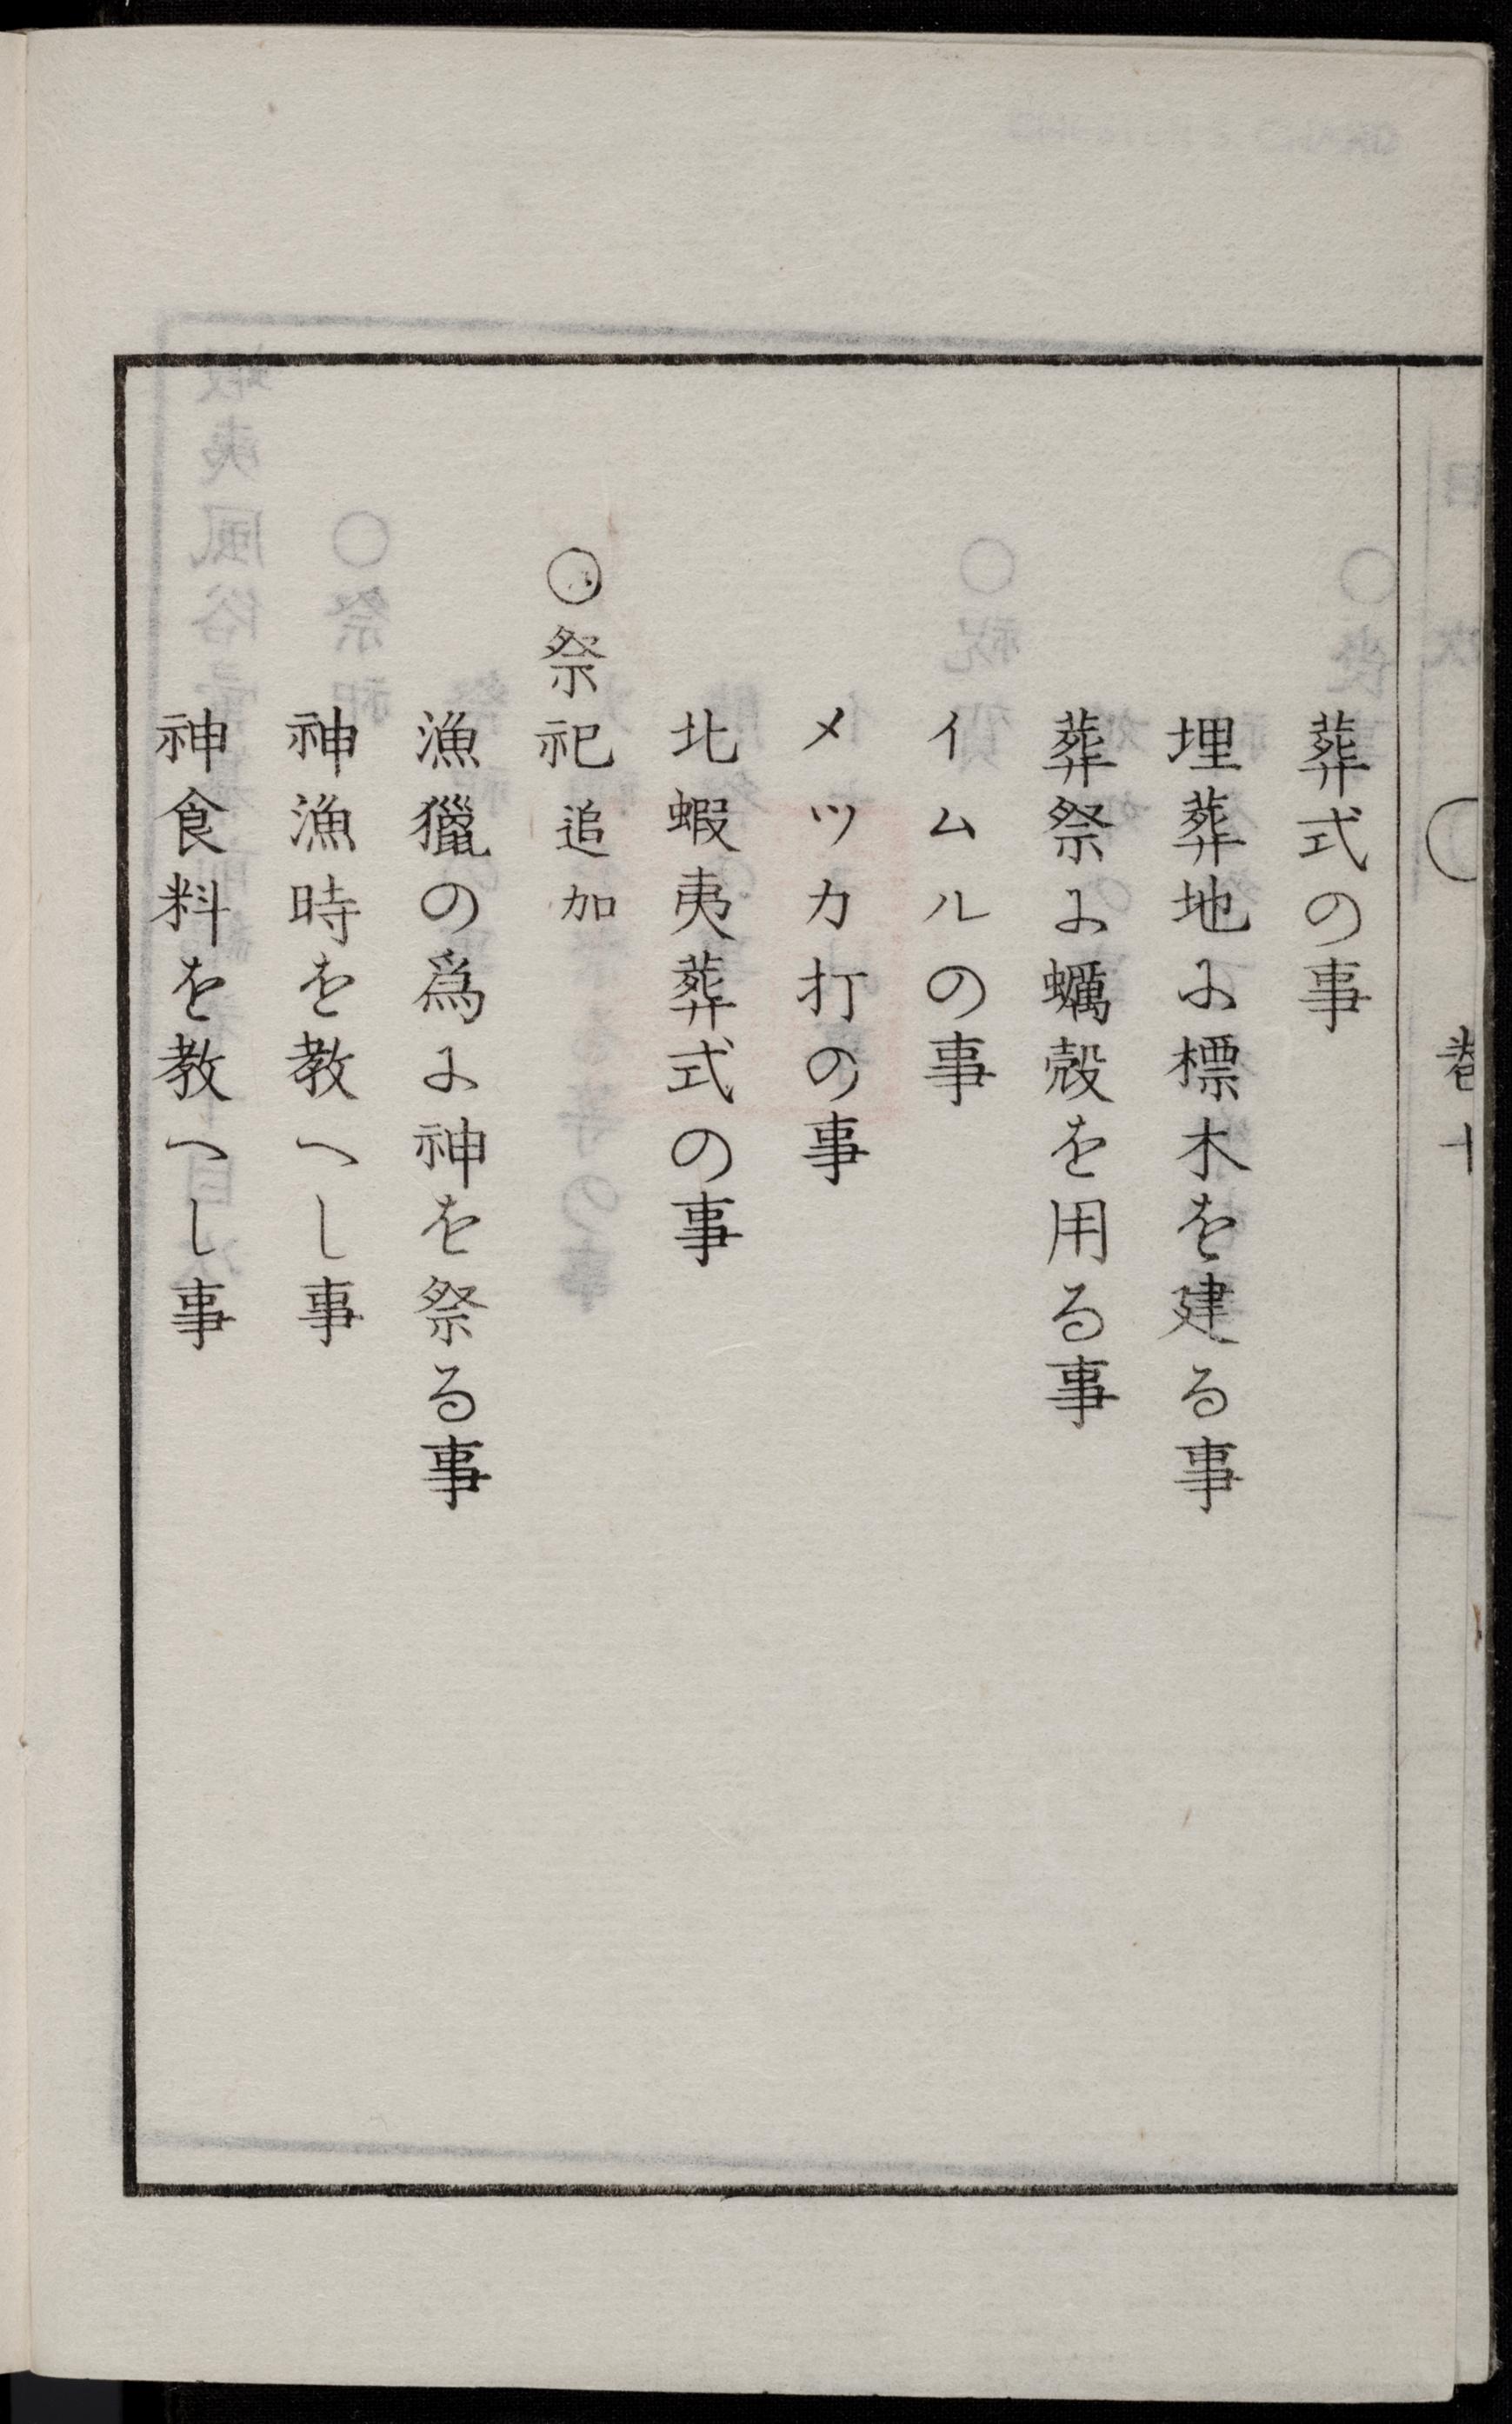 葬式の事
埋葬地に標木を建る事
葬祭に蠣殻を用る事
イムルの事
メツカ打の事
北蝦夷葬式の事
〇祭祀追加
漁獵の爲に神を祭る事
神漁時を教へし事
神食料を教へし事
巻十